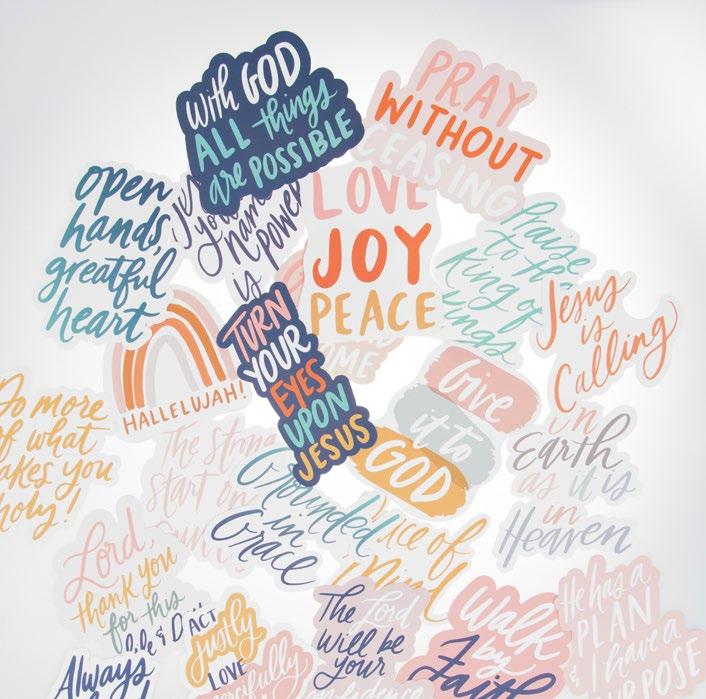 with GOD
ALL things
are POSSIBLE
PRAY
WITHOUT
CEASING
open
hands,
greatful
heart
your
name
is power
LOVE
JOY
PEACE
Praise
to the
King of
Kings
Jesus
is
Calling
HALLELUJAH!
TURN
YOUR
EYES
UPON
JESUS
Give
it to
GOD
on
Earth
as it is
in
Heaven
Do more
of what
makes you
holy!
The strong
start on
Grounded
in
Grace
Lord,
thank you
for this
ACT
justly
LOVE
mercifully
The Lord
will be
your
confidence
Walk
by
Faith
He has a
PLAN
& I have a
PURPOSE
Always